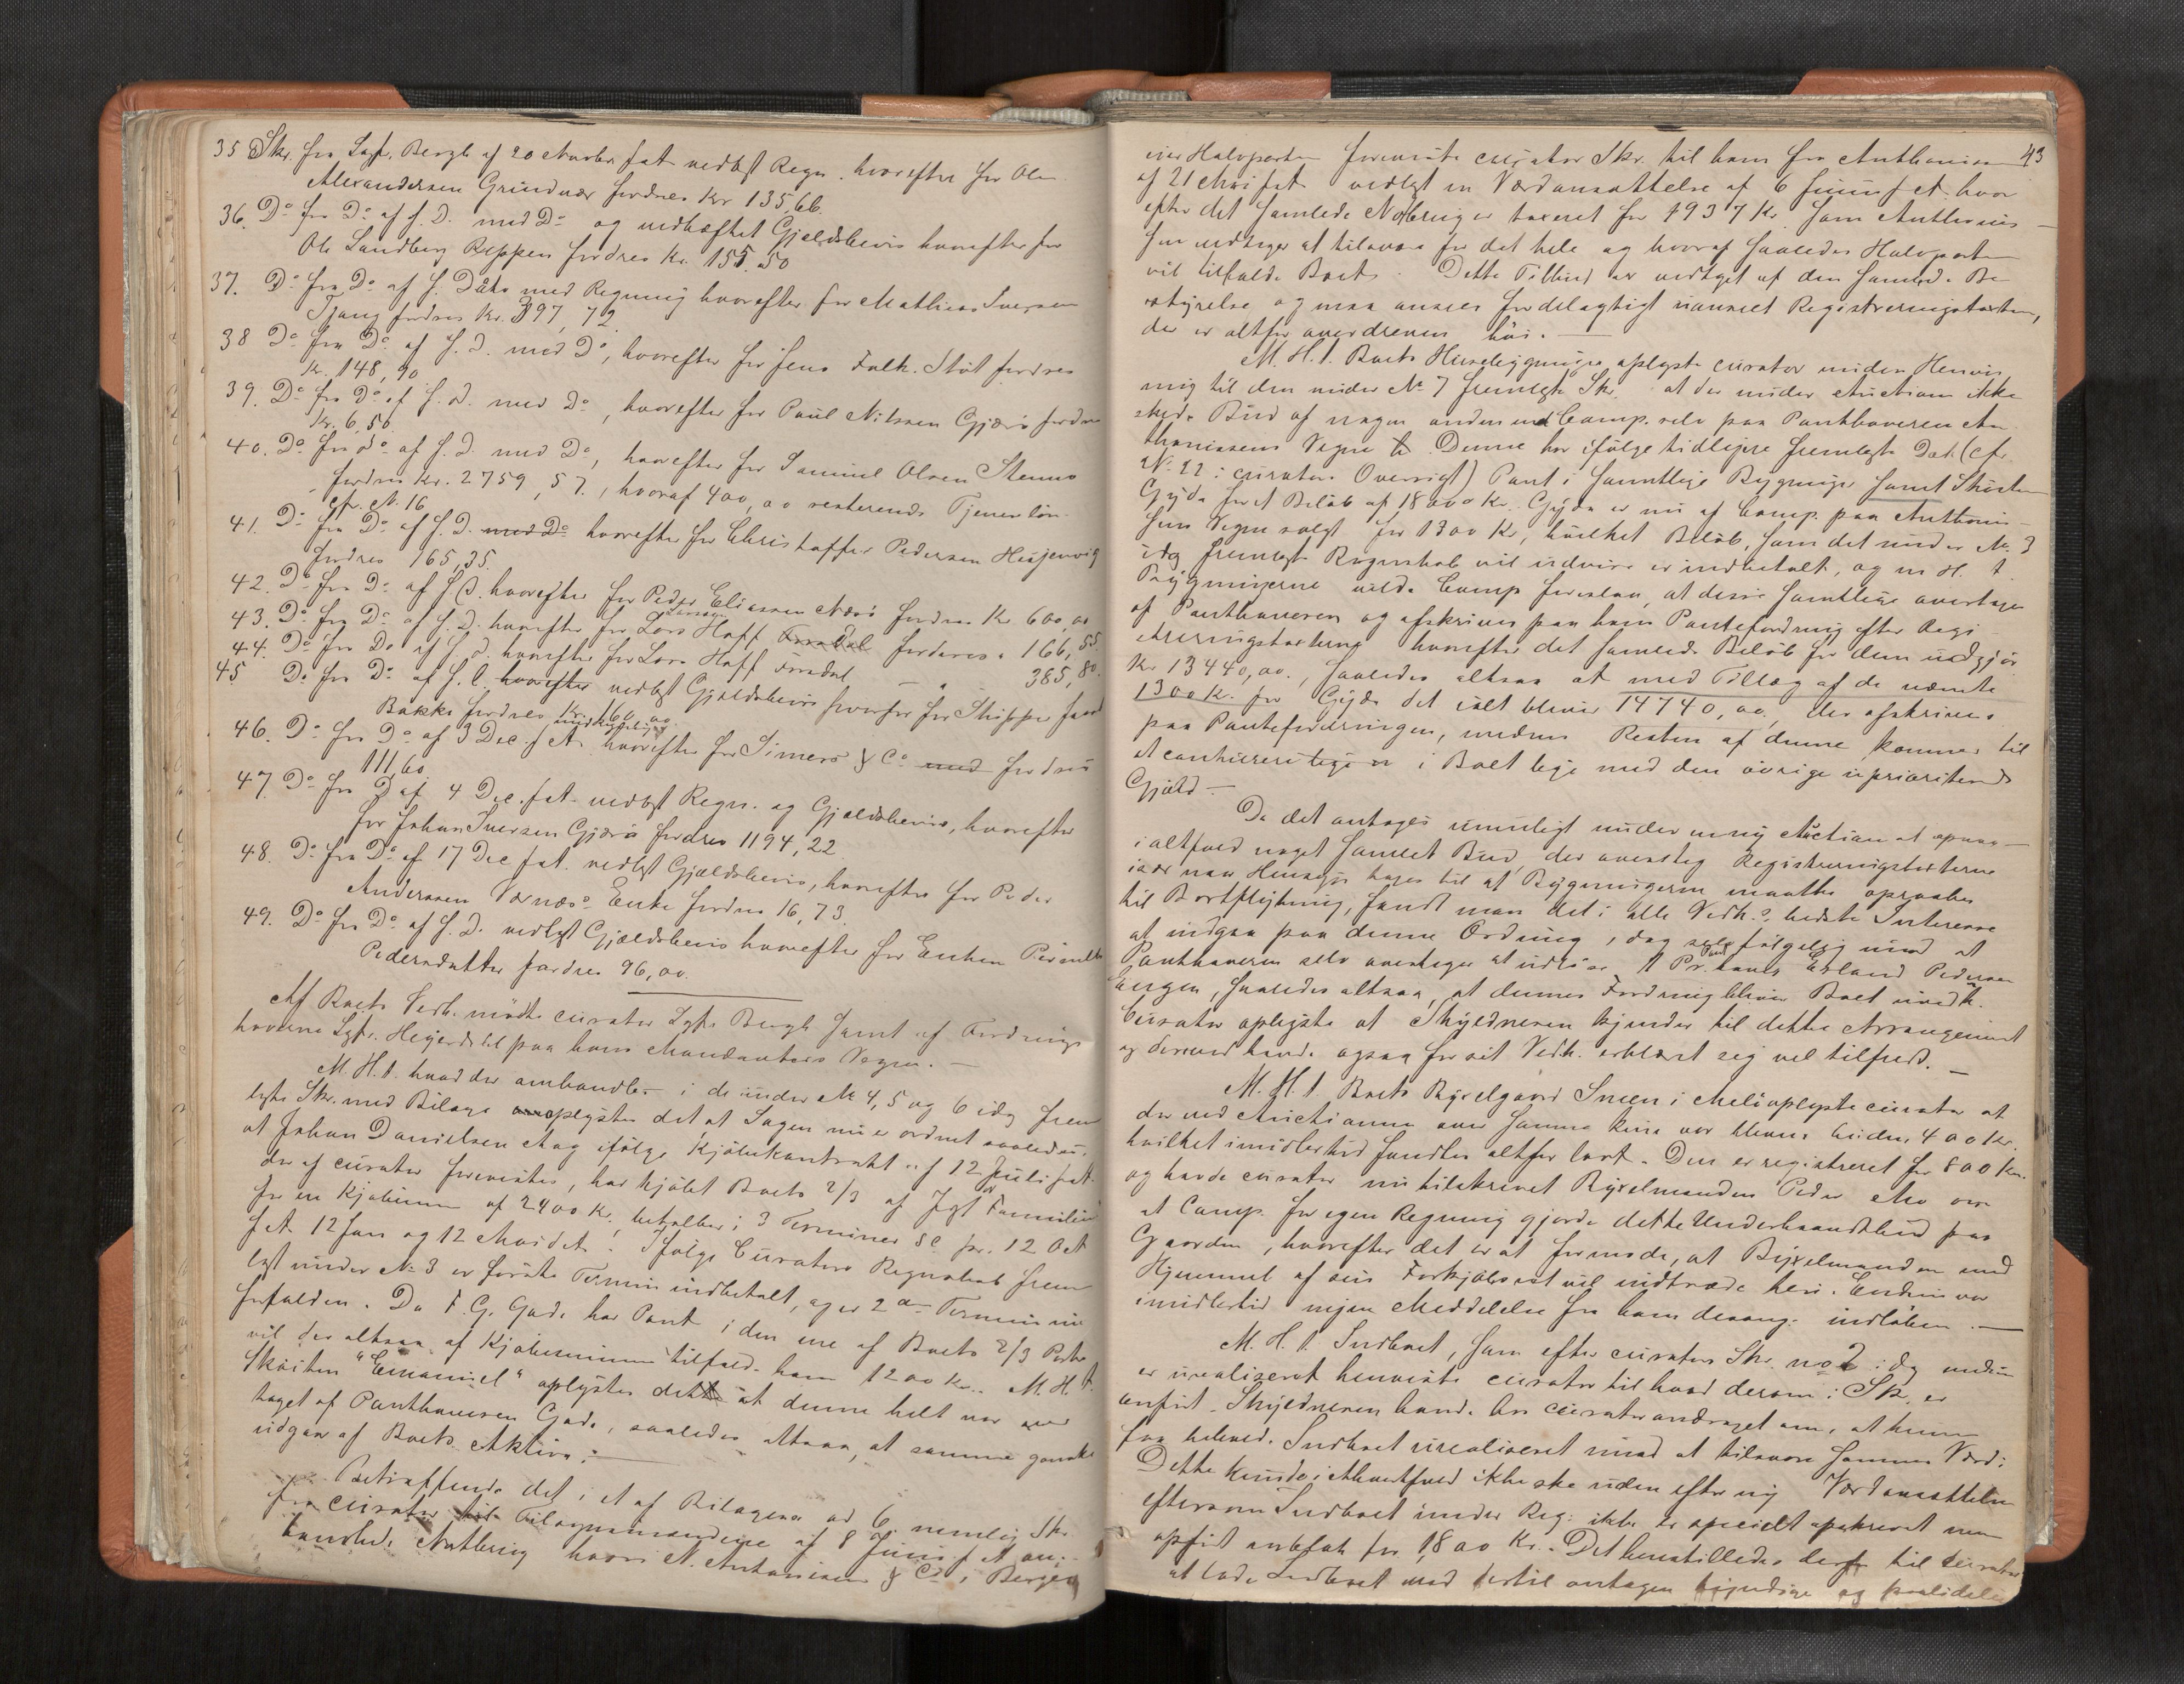 35 Skr. fra Sagf. Bergh af 20 Novbr f. at. vedlagt Regn. hvorefter for Ole
Alexandersen Grindnæs fordres Kr 135 66.
36. Do fra Do af s. D. med Do og vedhæftet Gjeldsbevis hvorefter for
Ole Sandberg Reppen fordres Kr. 155.50
37. Do fra Do af s. Dato med Regning hvorefter for Mathias Iversen
Tjong fordres Kr. 397,72.
38 Do fra Do af s. D. med Do, hvorefter for Jens Falk. Støt fordres
Kr. 148,90
39. Do fra Do af s. D. med Do, hvorefter for Paul Nilssen Gjærø fordres
Kr. 6,50.
40. Do fra do af s. D. med Do, hvorefter for Samuel Olsen Stenes
fordres Kr. 2759,57, hvoraf 400,00 resterende Tjenerløn.
cfr. N. 16
41. Do fra Do af s. D. med Do hvorefter for Christoffer Pedersen
fordres 165,35.
42. Do fra Do af s. D. hvorefter for Peder Eliassen Næsø fordres Kr 600,00
43. Do fra Do af s. D. hvorefter for Lars Larsen Hoff Forsdal fordres „ 166,55.
44. Do fra Do af s. d. hvorefter for Lars Hoff Forsdal — „ 385,80.
45 Do fra Do af s. D. hvorefter vedlagt Gjældsbevis hvorefter for Skipper
Bakke fordres Kr. 160,00.
46. Do fra Do af 3 Dec. f. A. hvorefter for Simers & Co med fordres
111,60
47. Do fra D af 4 Dec. f. at. vedlagt Regn. og Gjældsbevis, hvorefter
for Johan Iversen Gjærø fordres 1194,22
48. Do fra Do af 17 Dec f. at. vedlagt Gjældsbevis, hvorefter for Peder
Anderssen Værnæs's Enke fordres 16,73.
49. Do fra Do af s. D. vedlagt Gjældsbevis hvorefter for Enken Pernille
Pedersdatter fordres 96,00.
Af Boets Vedk. mødte curator Sagf. Bergh samt af Fordrings-
haverne Sagf. Hegerdahl paa hans Mandanters Vegne. —
M. H. t. hvad der omhandles i de under No 4, 5 og 6 idag frem
lagte Skr. med Bilage oplystes det, at Sagen nu er ordnet saaledes,
at Johan Danielsen Aag ifølge Kjøbekontrakt af 12 Juli f. at.
der af curator forevistes, har kjøbt Boets 2/3 af Jagt Familien
for en Kjøbesum af 2400 Kr. betalbar i 3 Terminer pr. 12 Oct
f. A. 12 Jan og 12 Mai d. A. Ifølge Curators Regnskab frem
lagt under No 3 er første Termin indbetalt, og er 2den Termin nu
forfalden. Da F. G. Gade har Pant i den ene af Boets 2/3 Parter
vil der altsaa af Kjøbesummen tilfalde ham 1200 Kr. M. H. t.
Skøiten "Emanuel" oplystes det at denne helt var over
taget af Panthaveren Gade, saaledes altsaa, at samme ganske
udgaar af Boets Aktiva. —
Betræffende det i et af Bilagene ad 6, nemlig Skr.
fra curator til Tilsynsmændene af 8 Juni f. A. om-
handlede Notbrug hvori A. Antonisen & Co, Bergen
43
eier Halvparten foreviste curator Skr. til ham fra Anthonisen
af 21 Mai f. at. vedlagt en Værdiansættelse af 6 Juni f. A. hvor
efter det samlede Notbrug er taxeret for 1937 Kr. som Anthonis
sen vedtager at tilsvare for det hele og hvoraf saaledes Halvparten
vil tilfalde Boet. Dette Tilbud er vedtaget af den samlede Be
styrelse og maa ansees fordelagtigt uanseet Registreringstaxten,
der er altfor overdreven høi. —
M. H. t. Boets Huusbygninger oplyste curator under Henvis
ning til den under No 7 fremlagte Skr. at der under Auctionen ikke
skede Bud af nogen anden end Comp. selv paa Panthaveren An
thonissens Vegne. Denne har ifølge tidligere fremlagte Dok. (cfr.
N. 22 i curators Oversigt) Pant i samtlige Bygninger samt Skøiten
Gyda for et Beløb af 18000 Kr. Gyda er nu af Comp. paa Anthonis-
sens Vegne solgt for 1300 Kr, hvilket Beløb, som det under No 3
idag fremlagte Regnskab vil udvise er indbetalt, og m. H. t.
Bygningerne vilde Comp foreslaa, at disse samtlige overtages
af Panthaveren og afskrives paa hans Pantefordring efter Regi
streringstaxterne hvorefter det samlede Beløb for dem udgjør
Kr 13440,00, saaledes altsaa at med Tillæg af de nævnte
1300 Kr. for Gyda det ialt bliver 14740,00, der afskrives
paa Pantefordringen, medens Resten af denne kommer til
at conkurrere lige i Boet lige med den øvrige uprioriterede
Gjæld. —
Da det antages umuligt under en ny Auction at opnaa
ialtfald noget samlet Bud, der oversteg Registreringstaxterne
især naar Hensyn tages til at Bygningerne maatte opraabes
til Bortflytning, fandt man det i alle Vedk.s bedste Interesse
at indgaa paa denne Ordning, dog selvfølgelig mod at
Panthaveren selv overtager at udløse 1 Pr. Panth. Erland Pedersen
Bergen, saaledes altsaa, at dennes Fordring bliver Boet uvedk.
Curator oplyste at Skyldneren kjender til dette Arrangement
og derved havde ogsaa for sit Vedk. erklæret sig vel tilfreds. —
M. H. t. Boets Bygselgaard Sneen i Melø oplyste curator at
der ved Auctionen over samme kun var bleven buden 400 Kr.
hvilket imidlertid fandtes altfor lavt. Den er registreret for 800 Kr.
og havde curator nu tilskrevet Bygselmanden Peder Mo om
at Comp. for egen Regning gjorde dette Underhaandsbud paa
Gaarden, hvorefter det er at formode, at Bygselmanden med
Hjemmel af sin Forkjøbsret vil indtræde heri. Endnu var
imidlertid ingen Meddelelse fra ham desang. indløben. —
M. H. t. Indboet, som efter curators Skr. no 2 idag endnu
er urealiseret henviste curator til hvad derom i Skr. er
anført. Skyldneren havde hos curator andraget om, at kunne
faa beholde Indboet urealiseret mod at tilsvare sammes Værdi.
Dette kunde i Almindelighed ikke ske uden efter ny Værdiansættelse
eftersom Indboet under Reg. ikke er specielt opskrevet men
opført anslaat for 1800 Kr. Det henstilledes derfor til curator
at lade Indboet ved dertil antagen kyndige og paalidelige